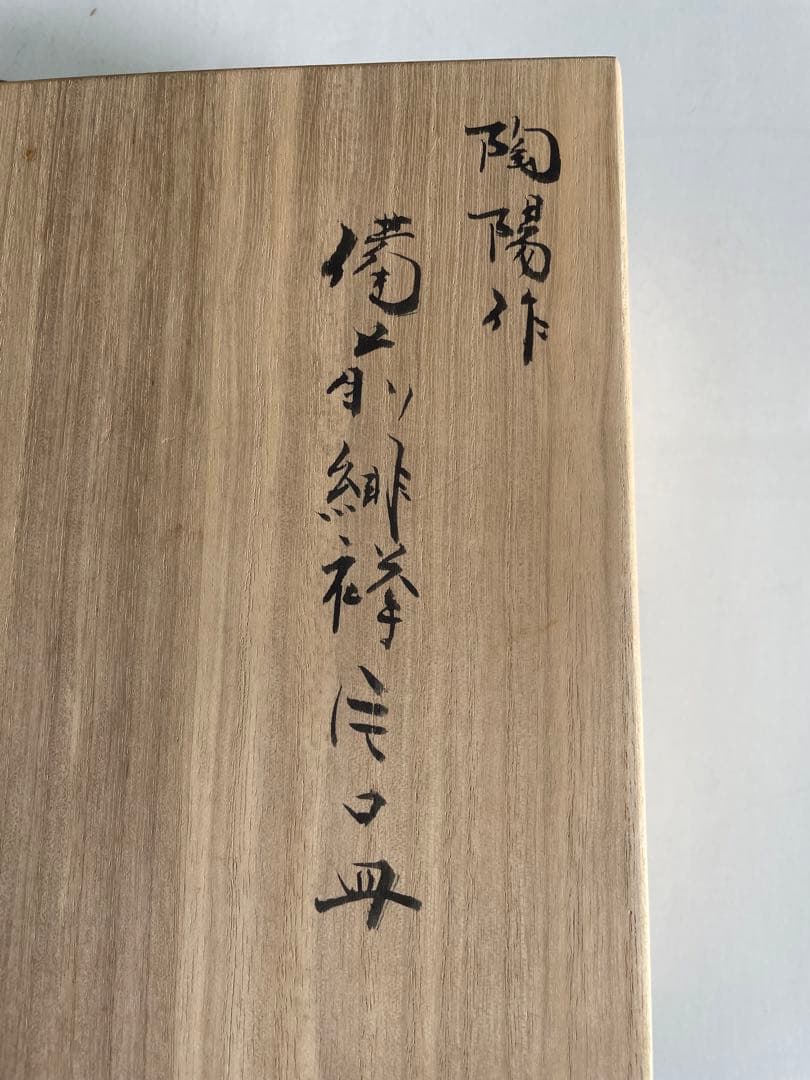 陶陽作
備前緋襷口皿